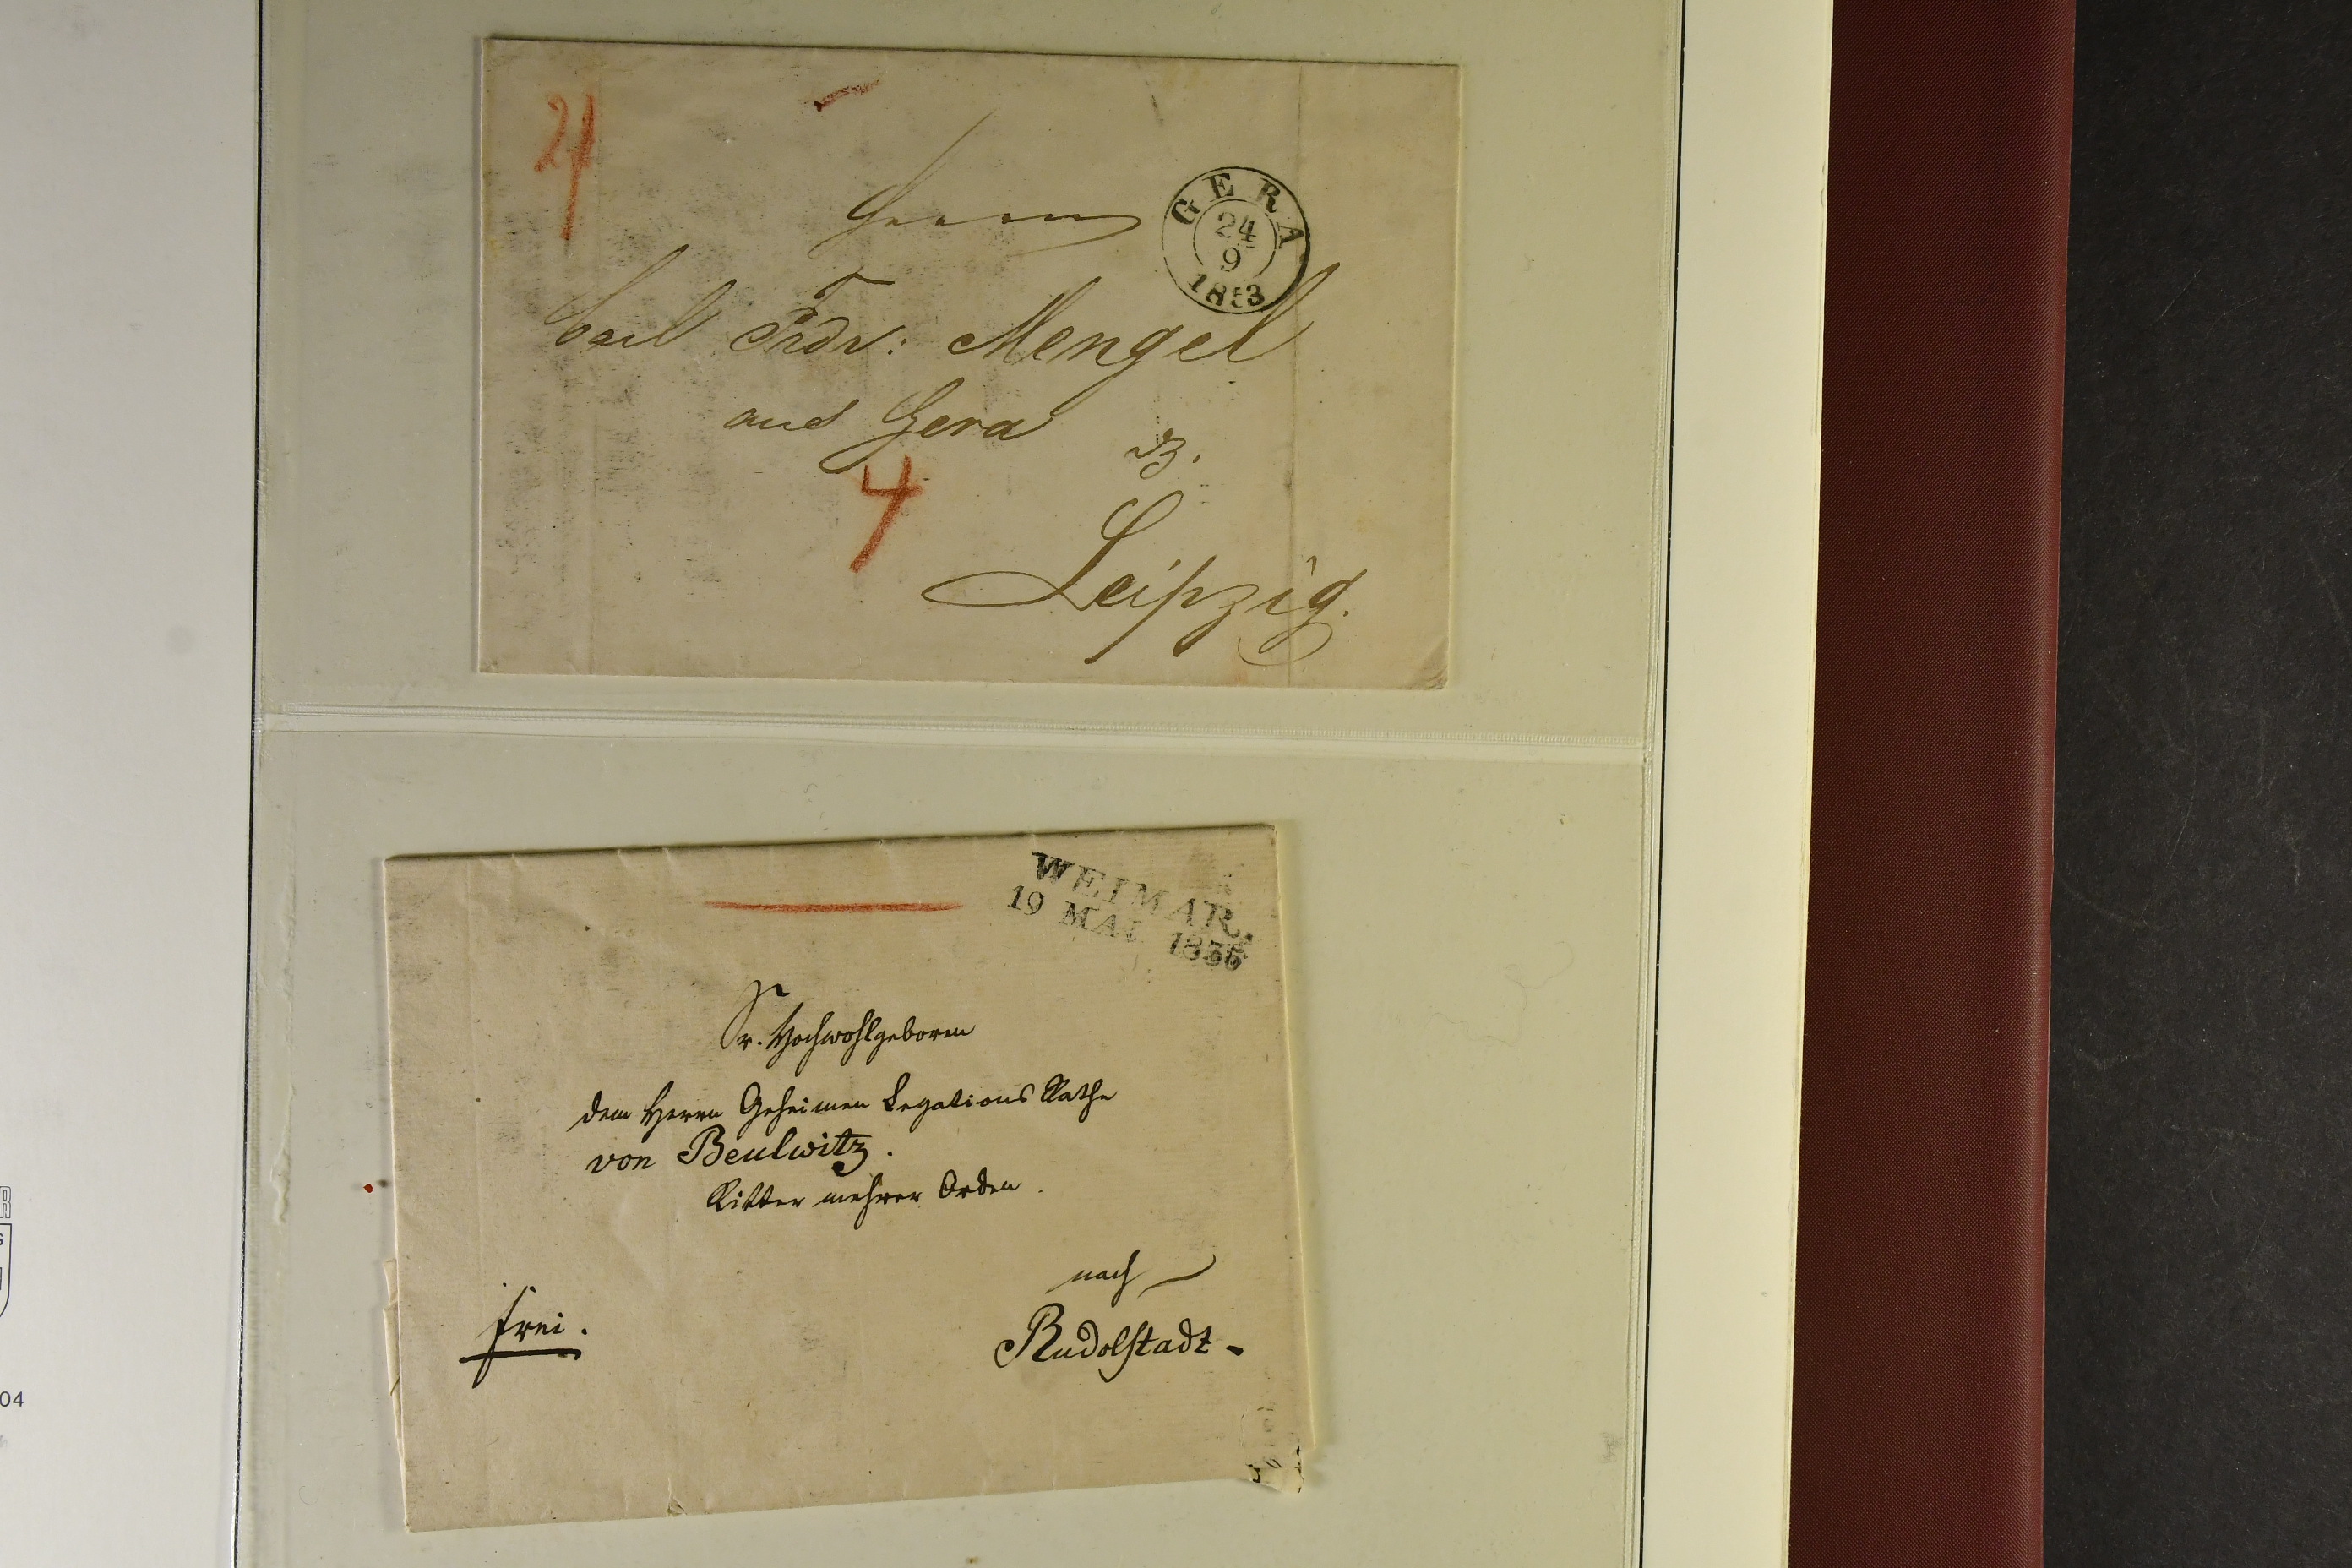 24
GERA
24
9
1853
Herrn
Carl Frdr: Mengel
aus Gera
4
Leipzig.
WEIMAR.
19 MAI
Sr. Hochwohlgeboren
dem Herrn Geheimen Legations Rathe
von Beulwitz.
Ritter mehrer Orden.
nach
frei.
Rudolstadt-
04